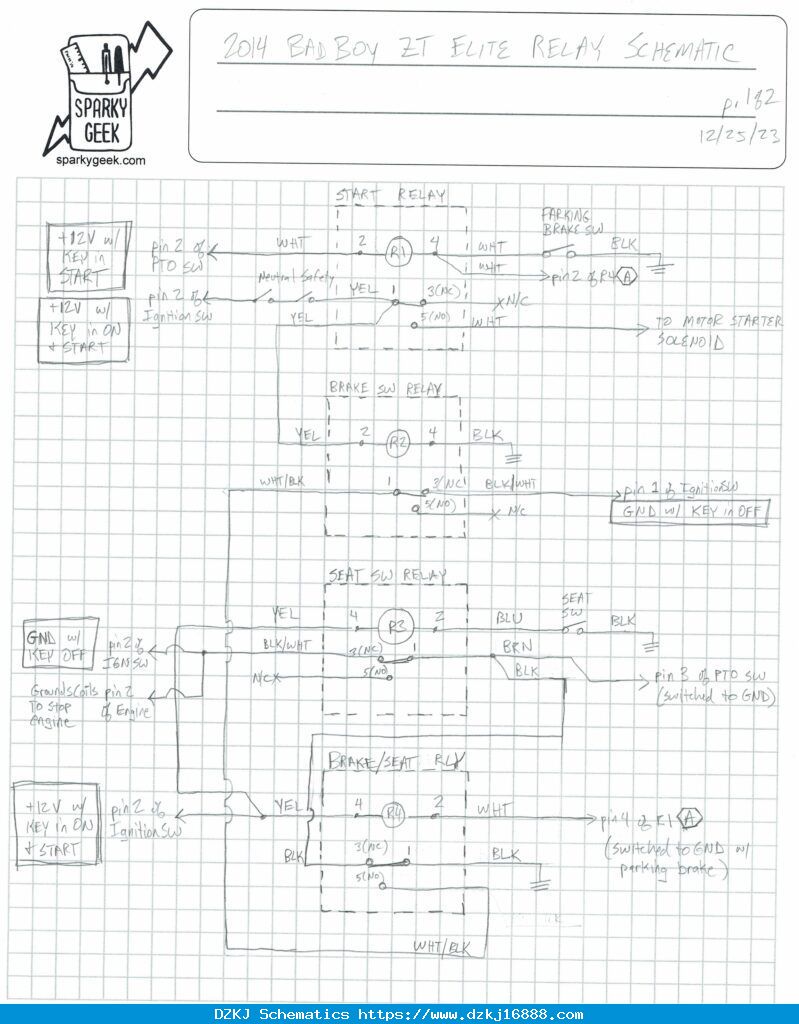 2014 BAD BOY ZT ELITE RELAY SCHEMATIC
p. 1 of 2
12/25/23
SPARKY
GEEK
sparkygeek.com
START RELAY
+12V w/
KEY in
START
pin 2 of
PTO SW
WHT
2
R1
4
WHT
PARKING
BRAKE SW
BLK
WHT
pin 2 of R4 A
+12V w/
KEY in ON
+ START
pin 2 of
Ignition SW
Neutral Safety
YEL
1
3(NC)
X N/C
YEL
5(NO)
WHT
TO MOTOR STARTER
SOLENOID
BRAKE SW RELAY
YEL
2
R2
4
BLK
WHT/BLK
1
3(NC)
BLK/WHT
pin 1 of Ignition SW
5(NO)
X N/C
GND w/ KEY in OFF
SEAT SW RELAY
YEL
4
R3
2
BLU
SEAT
SW
BLK
GND w/
KEY OFF
pin 2 of
IGN SW
BLK/WHT
3(NC)
1
BRN
N/C X
5(NO)
BLK
pin 3 of PTO SW
(switched to GND)
Grounds coils
To stop
engine
pin 2
of Engine
BRAKE/SEAT RLY
+12V w/
KEY in ON
+ START
pin 2 of
Ignition SW
YEL
4
R4
2
WHT
pin 4 of R1 A
(switched to GND w/
parking brake)
BLK
3(NC)
1
BLK
5(NO)
WHT/BLK
DZKJ Schematics https://www.dzkj16888.com